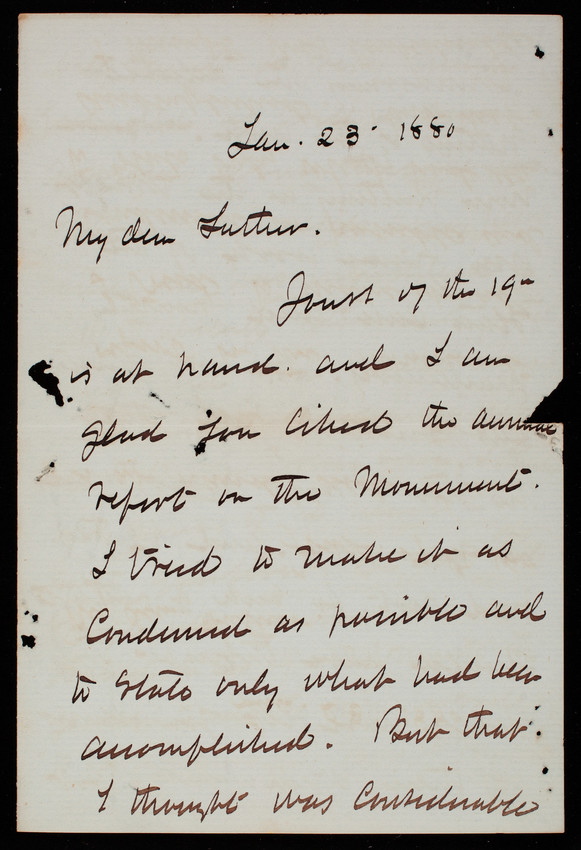 Jan. 23. 1880
My dear Father.
Yours of the 19th
is at hand. and I am
glad you liked the annual
report on the Monument.
I tried to make it as
Condensed as possible and
to state only what had been
accomplished. But that.
I thought was Considerable